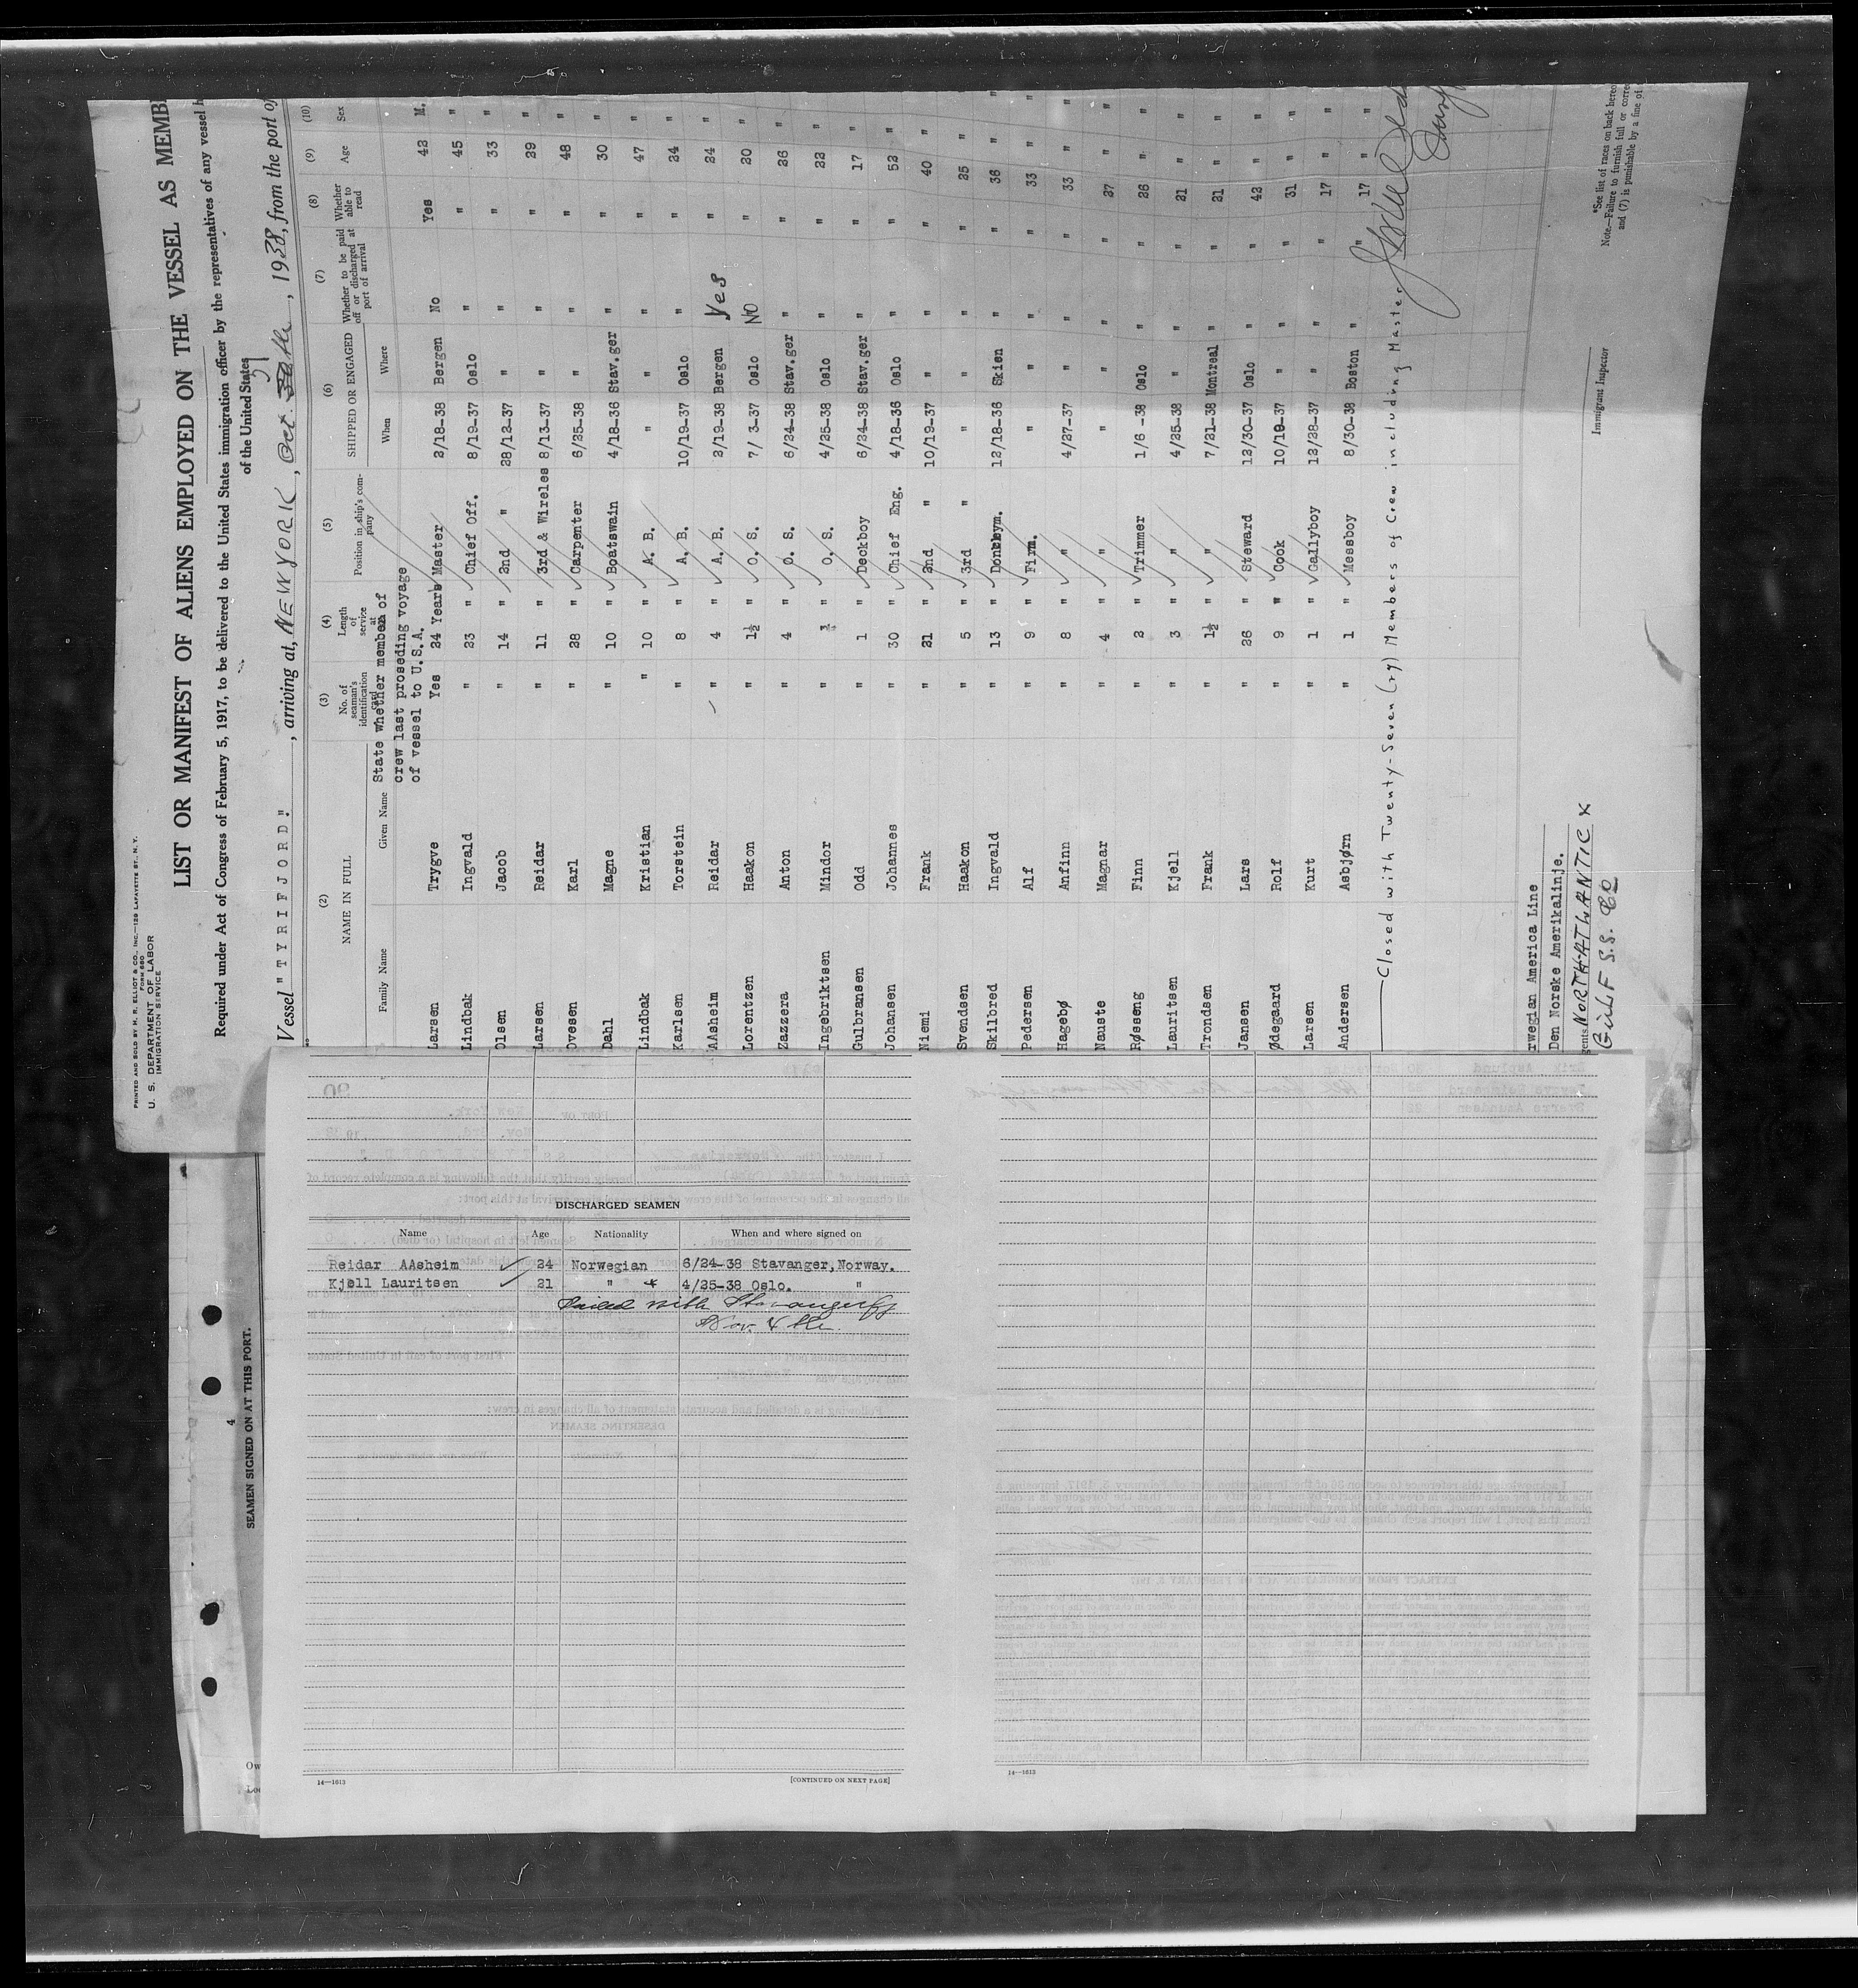 PRINTED AND SOLD BY M. R. ELLIOT & CO., INC.—129 LAFAYETTE ST., N. Y.
FORM 680
U. S. DEPARTMENT OF LABOR
IMMIGRATION SERVICE
LIST OR MANIFEST OF ALIENS EMPLOYED ON THE VESSEL AS MEMB
Required under Act of Congress of February 5, 1917, to be delivered to the United States immigration officer by the representatives of any vessel h
of the United States
Vessel "TYRIFJORD", arriving at, NEW YORK, Oct. , 1938, from the port of
(2) (3) (4) (5) (6) (7) (8) (9) (10)
NAME IN FULL No. of seaman's identification card Length of service at sea Position in ship's company SHIPPED OR ENGAGED Whether to be paid off or discharged at port of arrival Whether able to read Age Sex
Family Name Given Name When Where
State whether member of
crew last proseding voyage
of vessel to U.S.A.
Larsen Trygve Yes 24 Years Master 2/18-38 Bergen No Yes 42 M.
Lindbak Ingvald " 23 " Chief Off. 8/19-37 Oslo " " 45 "
Olsen Jacob " 14 " 2nd " 28/12-37 " " " 33 "
Larsen Reidar " 11 " 3rd & Wireles 8/13-37 " " " 29 "
Ovesen Karl " 28 " Carpenter 6/25-38 " " " 48 "
Dahl Magne " 10 " Boatswain 4/18-36 Stav.ger " " 30 "
Lindbak Kristian " 10 " A. B. " " " " 47 "
Karlsen Torstein " 8 " A. B. 10/19-37 Oslo " " 24 "
AAsheim Reidar " 4 " A. B. 2/19-38 Bergen Yes " 24 "
Lorentzen Haakon " 1½ " O. S. 7/ 3-37 Oslo NO " 20 "
Zazzera Anton " 4 " O. S. 6/24-38 Stav.ger " " 26 "
Ingebriktsen Mindor " " O. S. 4/25-38 Oslo " " 22 "
Gulbransen Odd " 1 " Deckboy 6/24-38 Stav.ger " " 17 "
Johansen Johannes " 30 " Chief Eng. 4/18-36 Oslo " " 52 "
Niemi Frank " 21 " 2nd " 10/19-37 " " " 40 "
Svendsen Haakon " 5 " 3rd " " " " " 25 "
Skilbred Ingvald " 13 " Donkeym. 12/18-36 Skien " " 36 "
Pedersen Alf " 9 " Firm. " " " " 33 "
Hagebø Anfinn " 8 " " 4/27-37 " " " 33 "
Nauste Magnar " 4 " " " " " " 27 "
Røsseng Finn " 2 " Trimmer 1/6 -38 Oslo " " 26 "
Lauritsen Kjell " 3 " " 4/25-38 " " " 21 "
Trondsen Frank " 1½ " " 7/21-38 Montreal " " 21 "
Jansen Lars " 26 " Steward 12/30-37 Oslo " " 42 "
Ødegaard Rolf " 9 " Cook 10/19-37 " " " 31 "
Larsen Kurt " 1 " Gallyboy 12/28-37 " " " 17 "
Andersen Asbjørn " 1 " Messboy 8/30-38 Boston " " 17 "
Closed with Twenty-Seven (27) Members of Crew including Master
rwegian America Line
Den Norske Amerikalinje.
gents NORTH ATLANTIC X
GULF S.S. CO
Immigrant Inspector
*See list of races on back hereo
Note—Failure to furnish full or corre
and (7) is punishable by a fine of
4
SEAMEN SIGNED ON AT THIS PORT.
Ow
DISCHARGED SEAMEN
Name Age Nationality When and where signed on
Reidar AAsheim 24 Norwegian 6/24-38 Stavanger, Norway.
Kjell Lauritsen 21 " 4/25-38 Oslo. "
Sailed with Stavangerfj
Nov. 4 the
14—1613 [CONTINUED ON NEXT PAGE]
14—1613